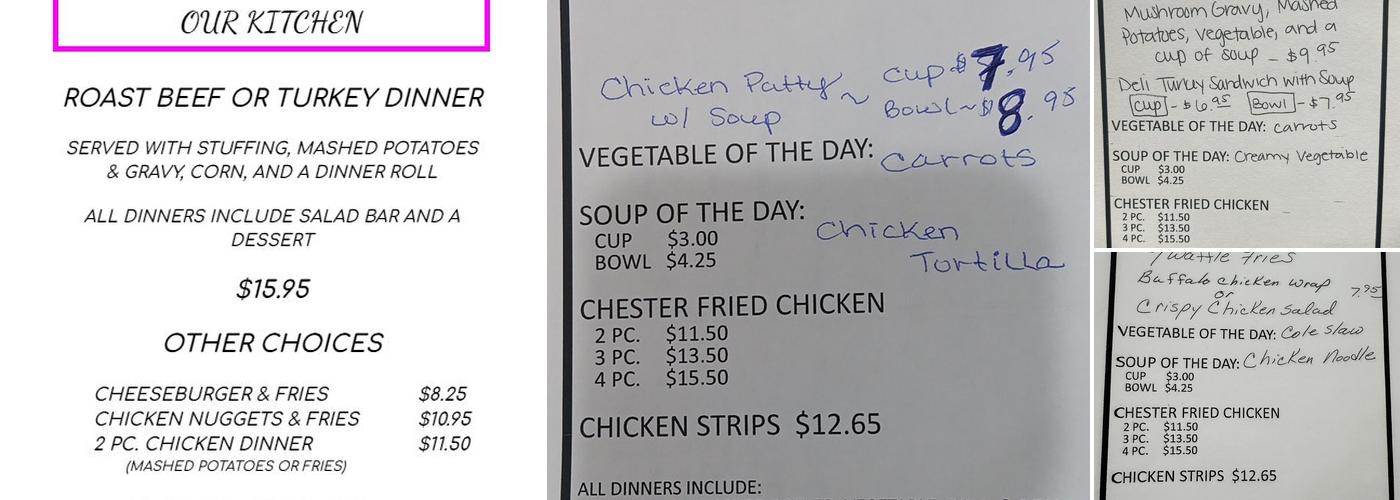 OUR KITCHEN
ROAST BEEF OR TURKEY DINNER
SERVED WITH STUFFING, MASHED POTATOES
& GRAVY, CORN, AND A DINNER ROLL
ALL DINNERS INCLUDE SALAD BAR AND A
DESSERT
$15.95
OTHER CHOICES
CHEESEBURGER & FRIES $8.25
CHICKEN NUGGETS & FRIES $10.95
2 PC. CHICKEN DINNER $11.50
(MASHED POTATOES OR FRIES)
Chicken Patty ~ cup $7.95
w/ Soup Bowl ~ $8.95
VEGETABLE OF THE DAY: carrots
SOUP OF THE DAY: Chicken
CUP $3.00 Tortilla
BOWL $4.25
CHESTER FRIED CHICKEN
2 PC. $11.50
3 PC. $13.50
4 PC. $15.50
CHICKEN STRIPS $12.65
ALL DINNERS INCLUDE:
Mushroom Gravy, Mashed
Potatoes, vegetable, and a
cup of soup - $9.95
Deli Turkey Sandwich with Soup
Cup - $6.95 Bowl - $7.95
VEGETABLE OF THE DAY: carrots
SOUP OF THE DAY: Creamy Vegetable
CUP $3.00
BOWL $4.25
CHESTER FRIED CHICKEN
2 PC. $11.50
3 PC. $13.50
4 PC. $15.50
Waffle fries
Buffalo chicken wrap 7.95
or
Crispy Chicken Salad
VEGETABLE OF THE DAY: Cole slaw
SOUP OF THE DAY: Chicken Noodle
CUP $3.00
BOWL $4.25
CHESTER FRIED CHICKEN
2 PC. $11.50
3 PC. $13.50
4 PC. $15.50
CHICKEN STRIPS $12.65